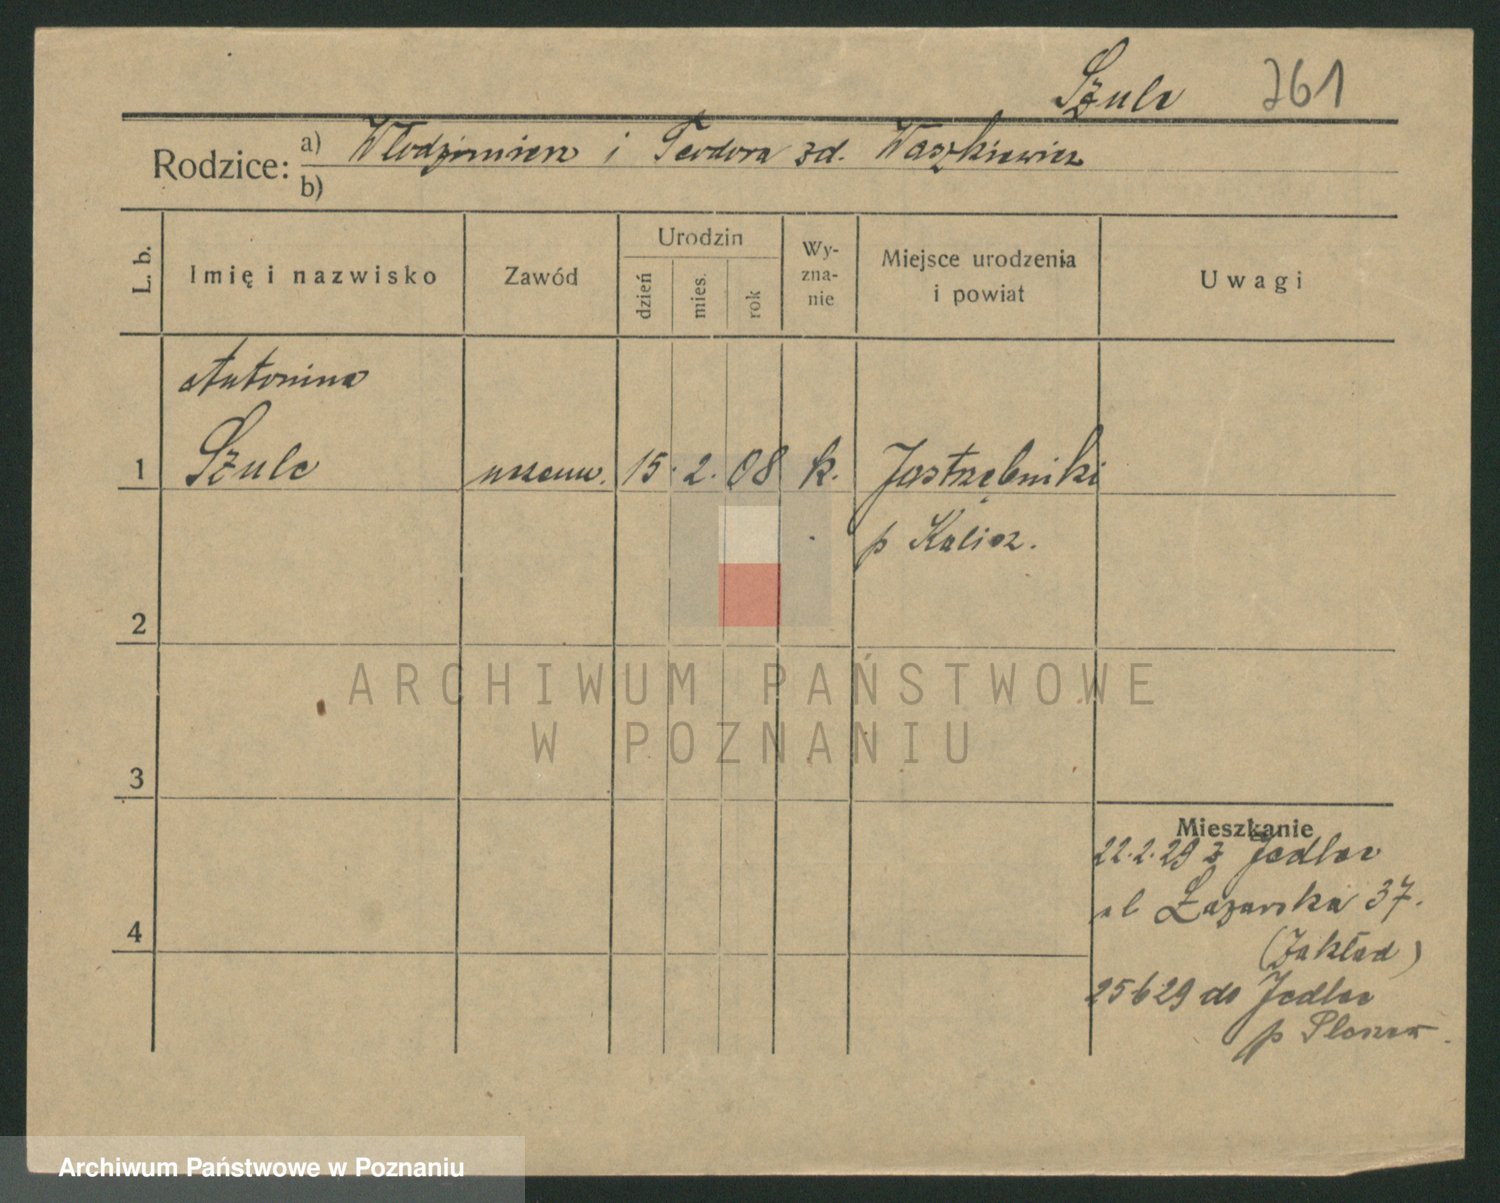 Szulc 261
Rodzice: a) Włodzimierz i Teodora zd. Waszkiewicz
b)
L. b.
Imię i nazwisko
Zawód
Urodzin
dzień
mies.
rok
Wy-
zna-
nie
Miejsce urodzenia
i powiat
Uwagi
Antonina
1 Szulc uczenn. 15. 2. 08 k. Jastrzębniki
p Kalisz.
2
ARCHIWUM PAŃSTWOWE
W POZNANIU
3
Mieszkanie
22.2.29 z Jedlec
ul Łazarska 37.
4
(Zakład)
25 6 29 do Jedlec
p Pleszew.
Archiwum Państwowe w Poznaniu